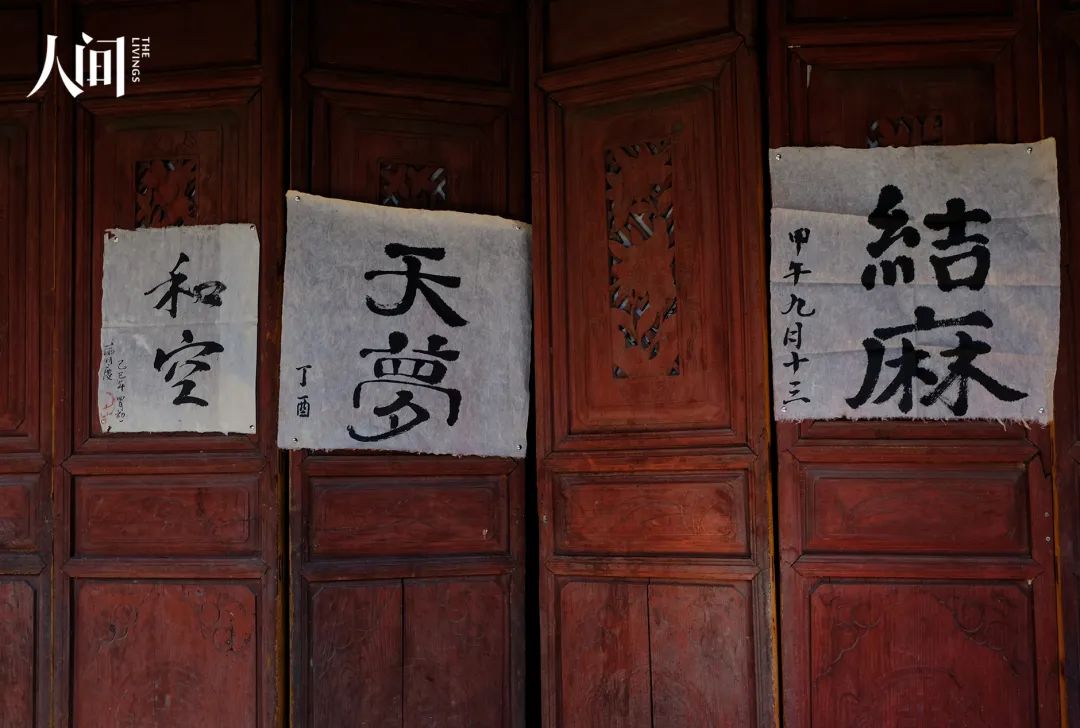 人间
THE
LIVINGS
和空
己巳年
天夢
丁酉
結麻
甲午九月十三